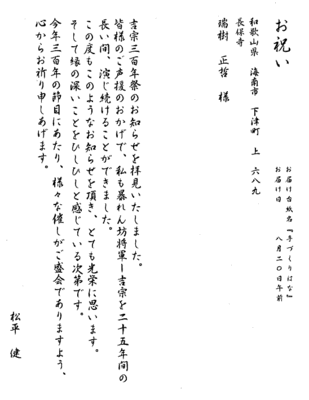 お祝い
お届け台紙名『手づくりはな』
お届け日　八月二〇日午前
和歌山県　海南市　下津町　上　六八九
長保寺
瑞樹　正哲　様
吉宗三百年祭のお知らせを拝見いたしました。
皆様のご声援のおかげで、私も暴れん坊将軍ー吉宗を二十五年間の
長い間、演じ続けることができました。
この度もこのようなお知らせを頂き、とても光栄に思います。
そして縁の深いことをひしひしと感じている次第です。
今年三百年の節目にあたり、様々な催しがご盛会でありますよう、
心からお祈り申しあげます。
松平　健